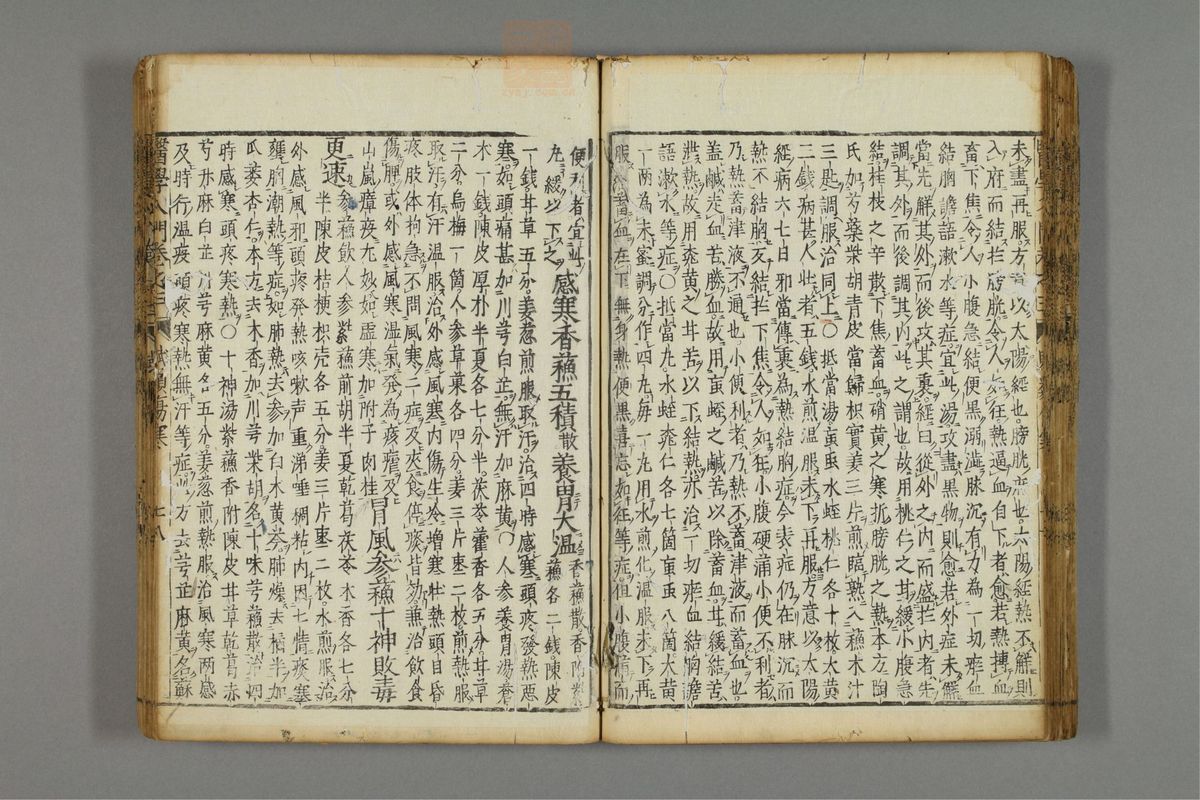 未盡再服方意以太陽經也膀胱府也太陽經熱不解則
入府而結於膀胱令人如狂熱逼血自下者愈若熱搏血
畜下焦令人小腹急結便黑溺澁脉沉有力為一切瘀血
結胸譫語漱水等症宜此湯攻盡黑物則愈若外症未解
當先解其外而後攻其裏經曰從外之内而盛於内者先
調其外而後調其内此之謂也故用桃仁之甘緩小腹急
結桂枝之辛散下焦蓄血硝黄之寒折膀胱之熱本方陶
氏加芍藥柴胡青皮當歸枳實姜三片煎臨熱入蘇木汁
三匙調服治同上〇抵當湯䖟虫水蛭桃仁各十枚大黄
二錢病甚人壮者五錢水煎温服未下再服方意以太陽
經病六七日邪當傳裏為熱結胸症今表症仍在脉沉而
熱不結胸又結於下焦令人如狂小腹硬滿小便不利者
乃熱蓄津液不通也小便利者乃熱不蓄津液而蓄血也
盖鹹走血苦勝血故用䖟蛭之鹹苦以除蓄血甘緩結苦
泄熱故用桃黄之甘苦以下結熱亦治一切瘀血結胸譫
語漱水等症〇抵當丸水蛭桃仁各七箇䖟虫八箇大黄
一兩為末蜜調分作四丸毎一丸用水煎化温服未下再
服治蓄血在下無身熱便黑喜忘如狂等症但小腹滿而
便利者宜此
丸緩以下之 感寒香蘇五積散養胃大温 香蘇散香附紫
蘇各二錢陳皮
一錢甘草五分姜葱煎服取汗治四時感寒頭疼發熱惡
寒如頭痛甚加川芎白芷無汗加麻黄〇人参養胃湯蒼
木一錢陳皮厚朴半夏各七分半茯苓藿香各五分甘草
二分烏梅一箇人参草菓各四分姜三片枣二枚煎熱服
取汗有汗温服治外感風寒内傷生冷增寒壮熱頭目昏
疼肢体拘急不問風寒二症及夾食停痰皆効兼治飲食
傷脾或外感風寒温氣發為痎瘧及
山嵐瘴疫尤妙如虛寒加附子肉桂 冒風参蘇十神敗毒
更速 参蘇飲人参紫蘇前胡半夏乾葛茯苓木香各七分
半陳皮桔梗枳壳各五分姜三片枣二枚水煎服治
外感風邪頭疼發熱咳嗽声重涕唾稠粘内因七情痰塞
壅胸潮熱等症如肺熱去参加白木黄芩肺燥去橘半加
瓜蔞杏仁本方去木香加川芎柴胡名十味芎蘇散治四
時感寒頭疼寒熱〇十神湯紫蘇香附陳皮甘草乾葛赤
芍升麻白芷川芎麻黄各五分姜葱煎熱服治風寒两感
及時行温疫頭疼寒熱無汗等症此方去芎芷麻黄名蘇